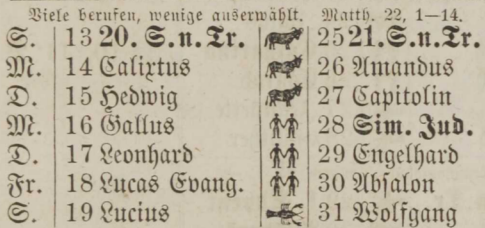 Viele berufen, wenige auserwählt. Matth. 22, 1—14.
S. 13 20. S. n. Tr. 25 21. S. n. Tr.
M. 14 Calixtus 26 Amandus
D. 15 Hedwig 27 Capitolin
M. 16 Gallus 28 Sim. Jud.
D. 17 Leonhard 29 Engelhard
Fr. 18 Lucas Evang. 30 Absalon
S. 19 Lucius 31 Wolfgang